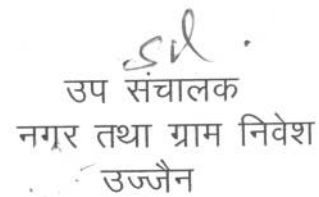 sd.
उप संचालक
नगर तथा ग्राम निवेश
उज्जैन